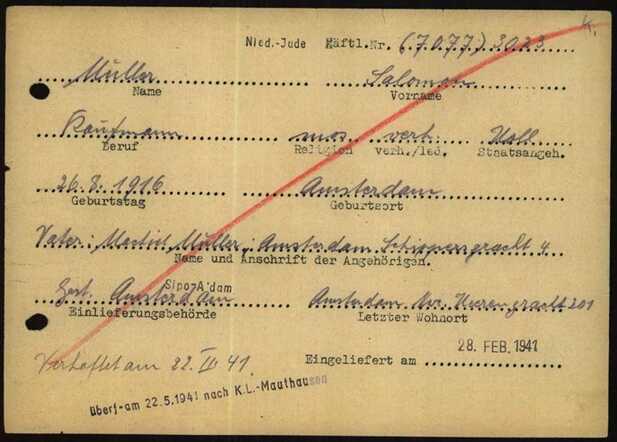 Nied.-Jude Häftl.Nr. (7077) 3023 K.
Müller Salomon
Name Vorname
Kaufmann mos. verh. Holl.
Beruf Religion verh./led. Staatsangeh.
26.8.1916 Amsterdam
Geburtstag Geburtsort
Vater: Müller; Amsterdam, Schippersgracht 4
Name und Anschrift der Angehörigen.
Sipo-A'dam
Amsterdam Amsterdam 201
Einlieferungsbehörde Letzter Wohnort
28. FEB. 1941
Verhaftet am 22. 41. Eingeliefert am
überf. am 22.5.1941 nach K.L.-Mauthausen